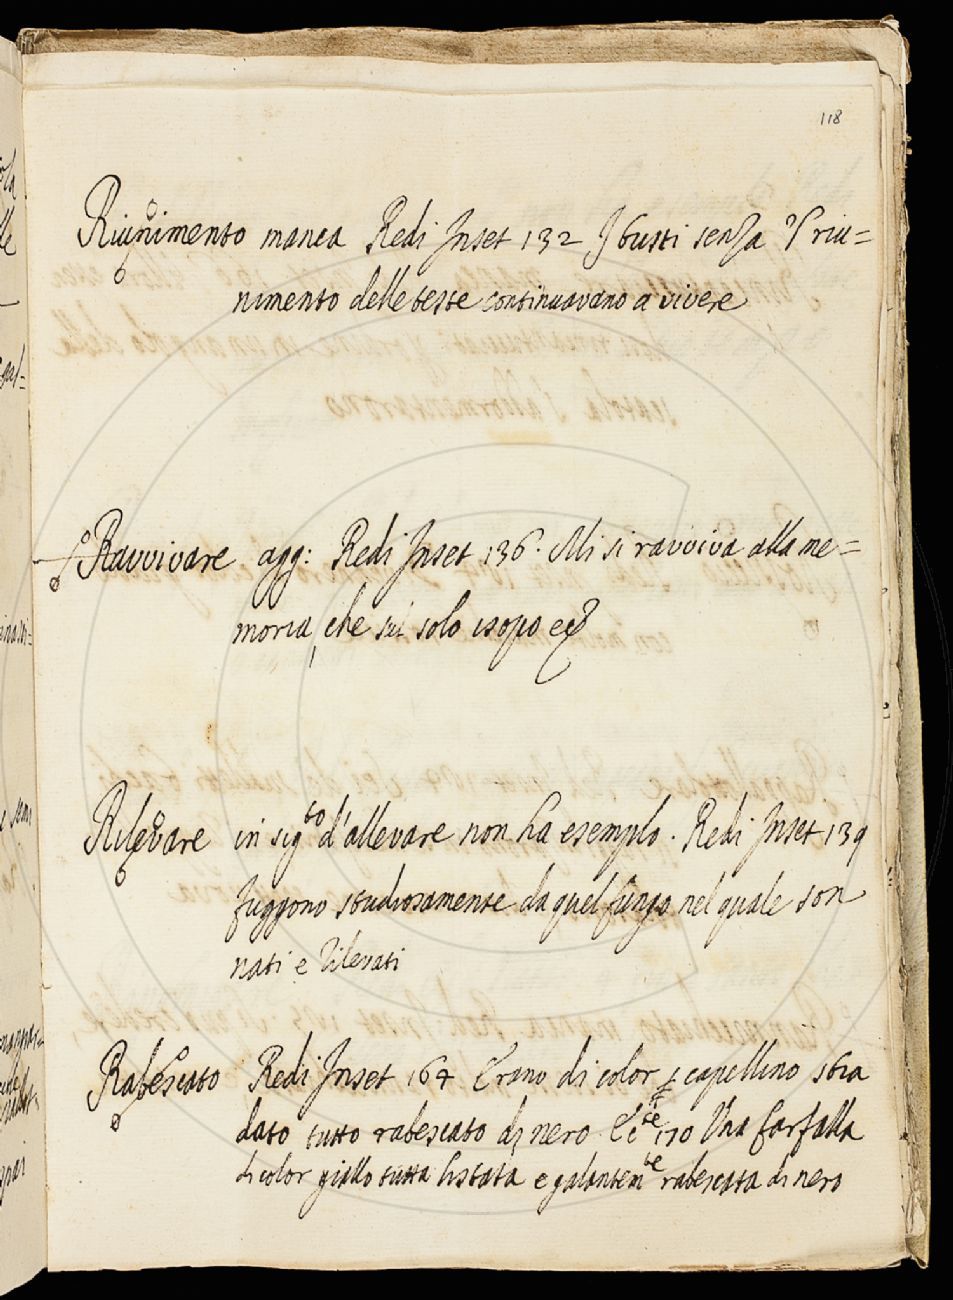 118
Riunimento manca Redi Inset 132 I busti senza 'l riu=
nimento delle teste continuavano a vivere
Ravvivare agg: Redi Inset 136. Mi si ravviva alla me=
moria, che sul solo isopo
Rilevare in sig.to d'allevare non ha esempio. Redi Inset 139
fuggono studiosamente da quel fungo nel quale son
nati e rilevati
Rabescato Redi Inset 164 Erano di color capellino
dato tutto rabescato di nero. E 170 Una farfalla
di color giallo tutta listata e galantem.te rabescata di nero